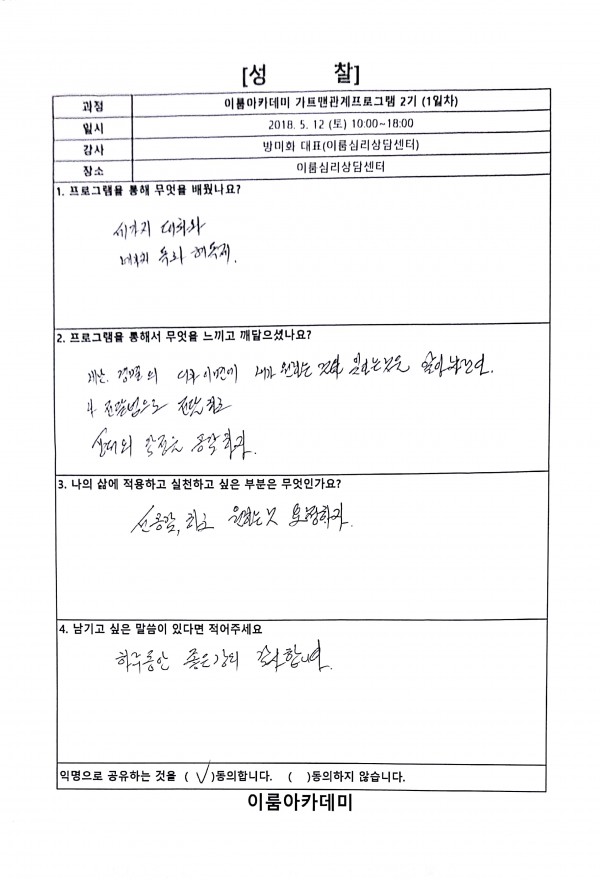 [성 찰]
과정 이룸아카데미 가트맨관계프로그램 2기 (1일차)
일시 2018. 5. 12 (토) 10:00~18:00
강사 방미화 대표(이룸심리상담센터)
장소 이룸심리상담센터
1. 프로그램을 통해 무엇을 배웠나요?
세가지 대화와
네가지 독와 해독제.
2. 프로그램을 통해서 무엇을 느끼고 깨달으셨나요?
내가 원하는 것을
전달하고
상대의 감정을 공감하자.
3. 나의 삶에 적용하고 실천하고 싶은 부분은 무엇인가요?
선공감, 하고 원하는 것 요청하자.
4. 남기고 싶은 말씀이 있다면 적어주세요
하루동안 좋은강의 감사합니다.
익명으로 공유하는 것을 ( ✓ )동의합니다. ( )동의하지 않습니다.
이룸아카데미